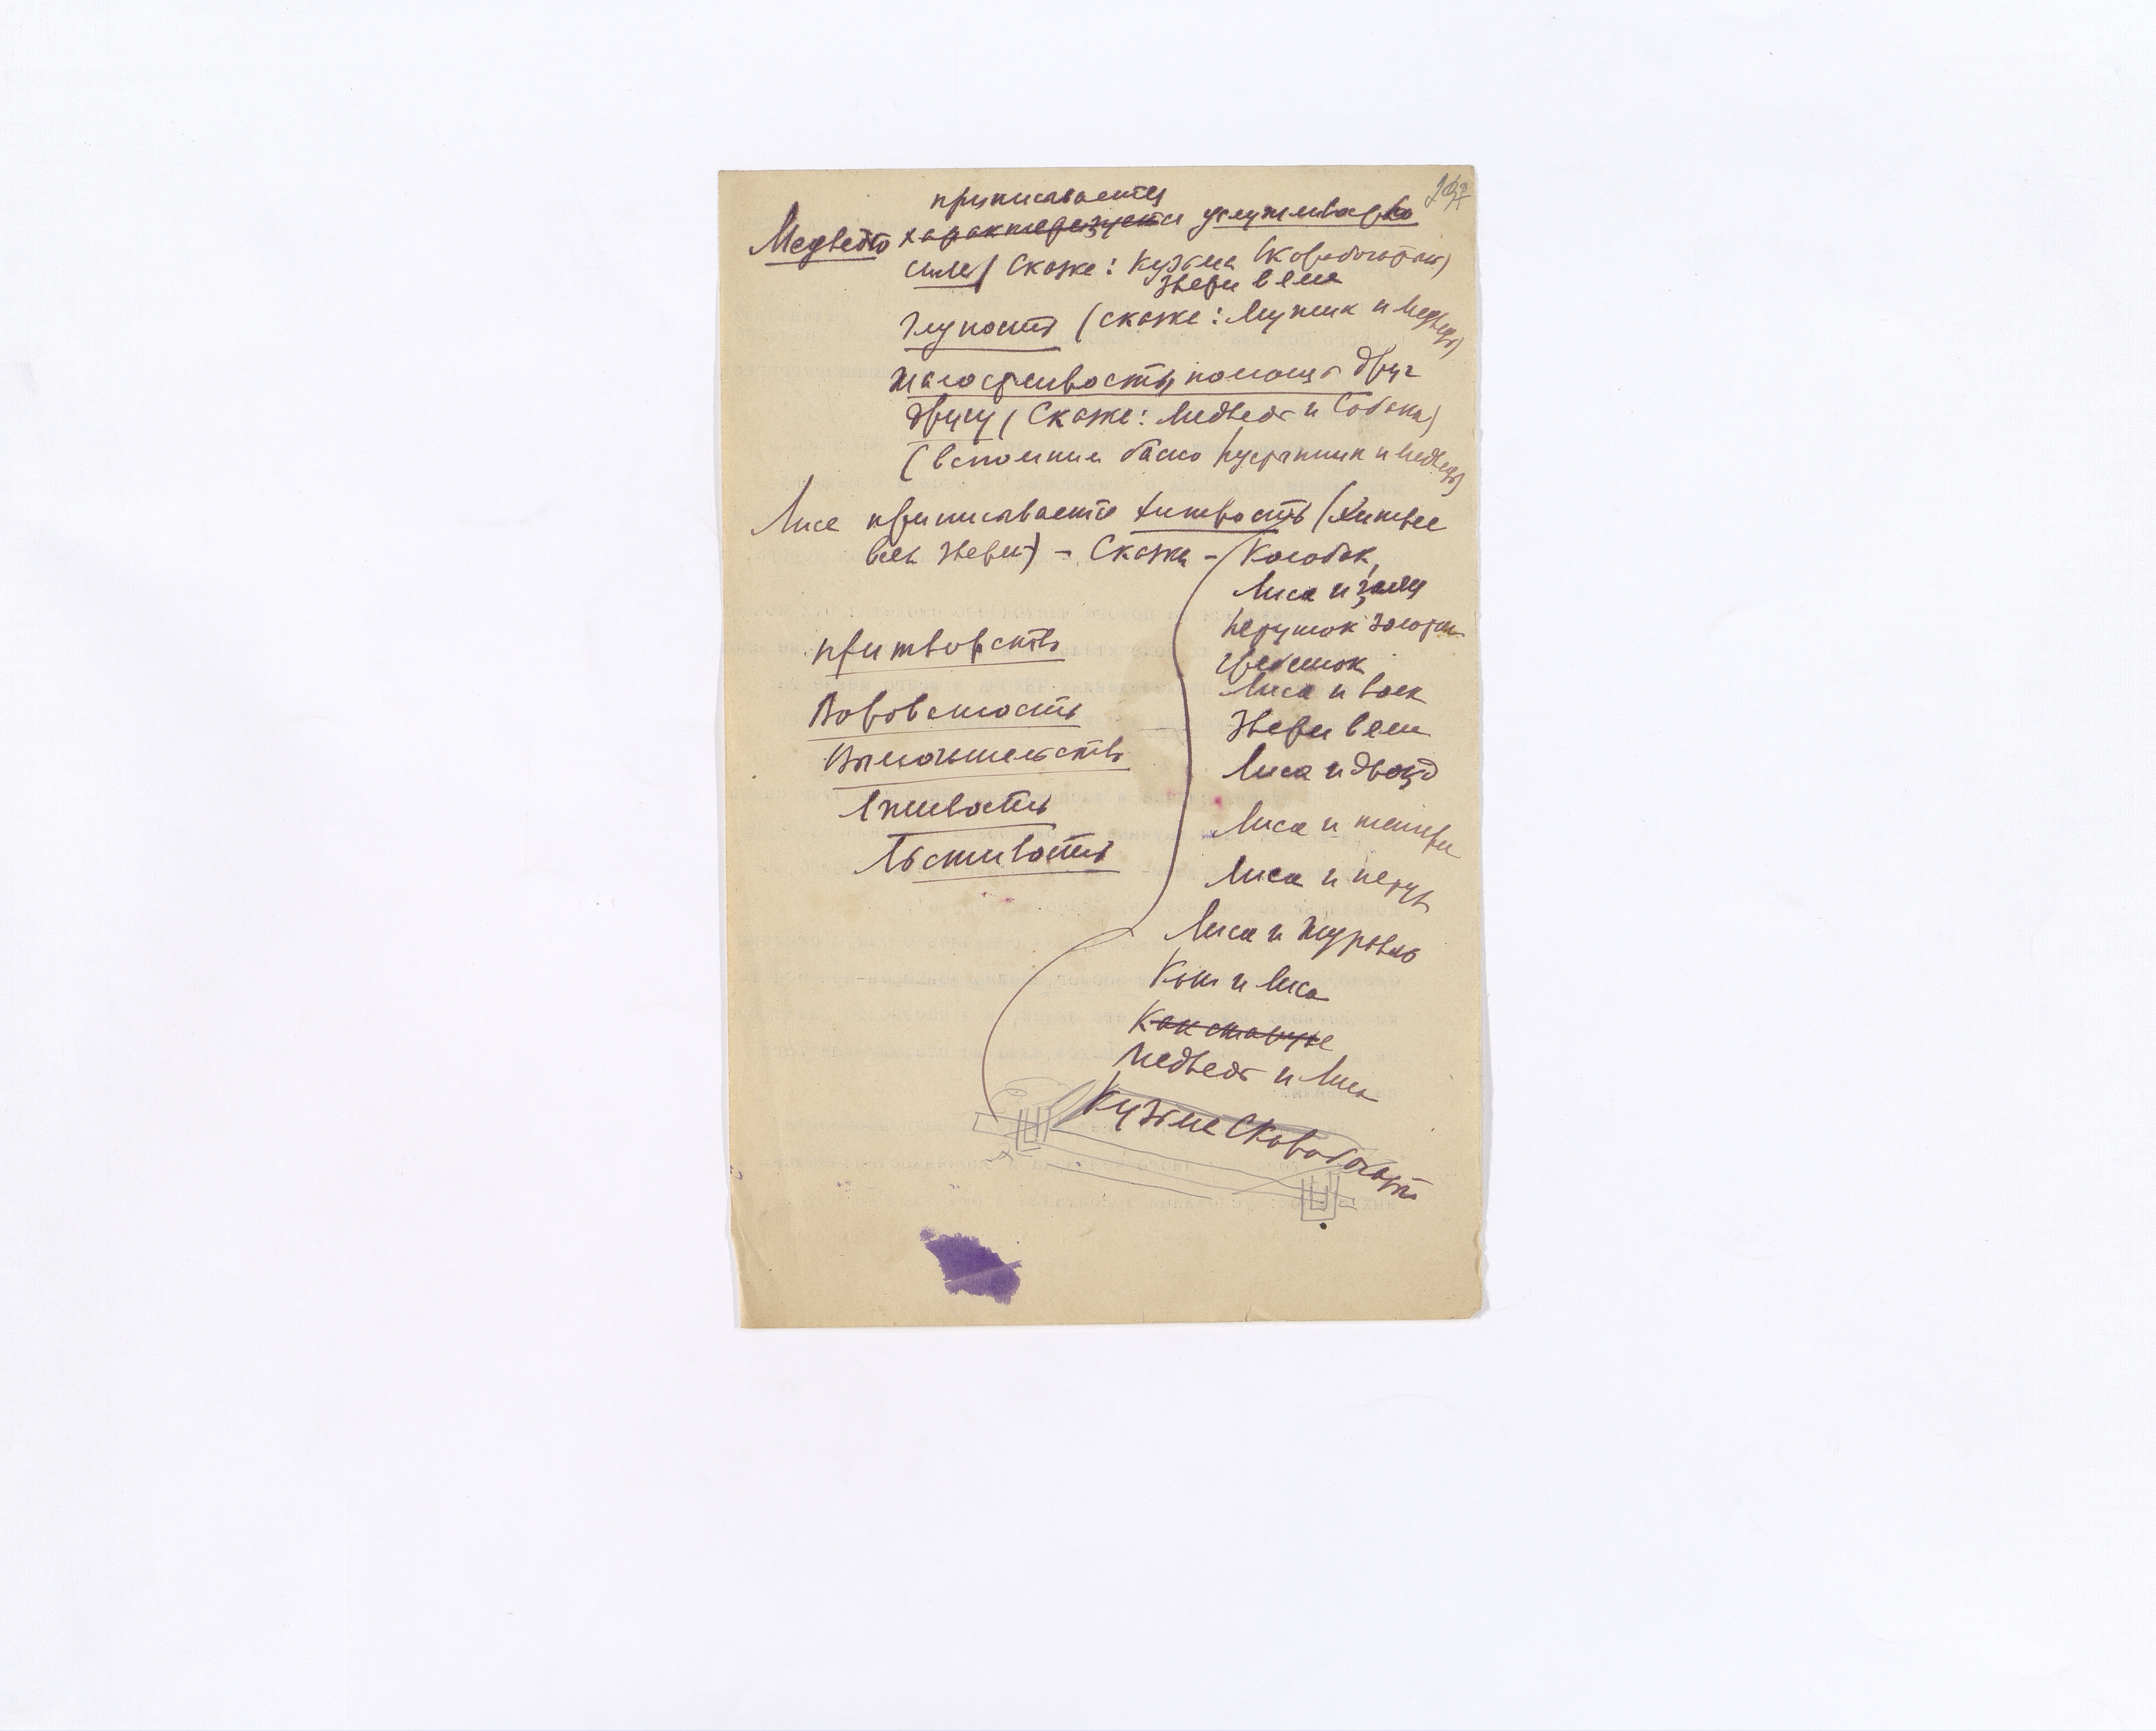 приписывается
Медведю характеризуется услужливость
сила (Сказке: Кузьма Скоробогатый)
Звери в яме
Глупость (сказке: Мужик и Медведь)
жалостливость, помощь друг
другу (Сказке: Медведь и Собака)
(вспомним басню Пустынник и Медведь)
Лисе приписывается хитрость (Хитрее
всех зверей) - Сказки - Колобок,
Лиса и заяц
Петушок золотой
гребешок
Лиса и волк
Звери в яме
Лиса и дрозд
Лиса и тетерев
Лиса и петух
Лиса и журавль
Кот и Лиса
Как старуха
Медведь и Лиса
Кузьма Скоробогатый
притворство
Вороватость
Вымогательство
Лживость
Льстивость